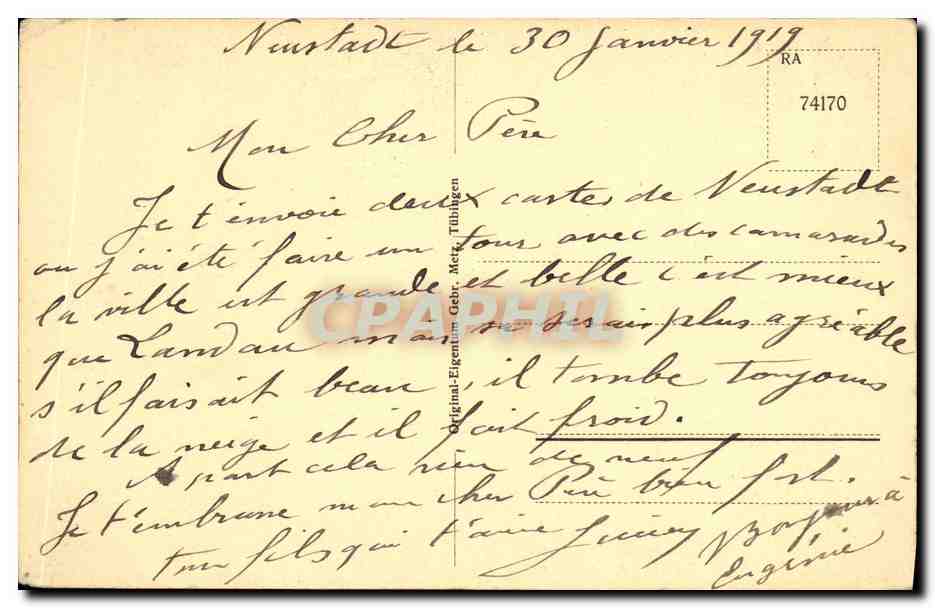 Neustadt le 30 Janvier 1919
RA
74170
Mon Cher Père
Je t'envoie deux cartes de Neustadt
ou j'ai été faire un tour avec des camarades
la ville est grande et belle c'est mieux
que Landau mais se serais plus agréable
s'il faisait beau, il tombe toujours
de la neige et il fait froid.
A part cela rien de neuf
Je t'embrasse mon cher Père bien fort.
ton fils qui t'aime
Bonjour à
Eugénie
Original-Eigentum Gebr. Metz, Tübingen
CPAPHIL